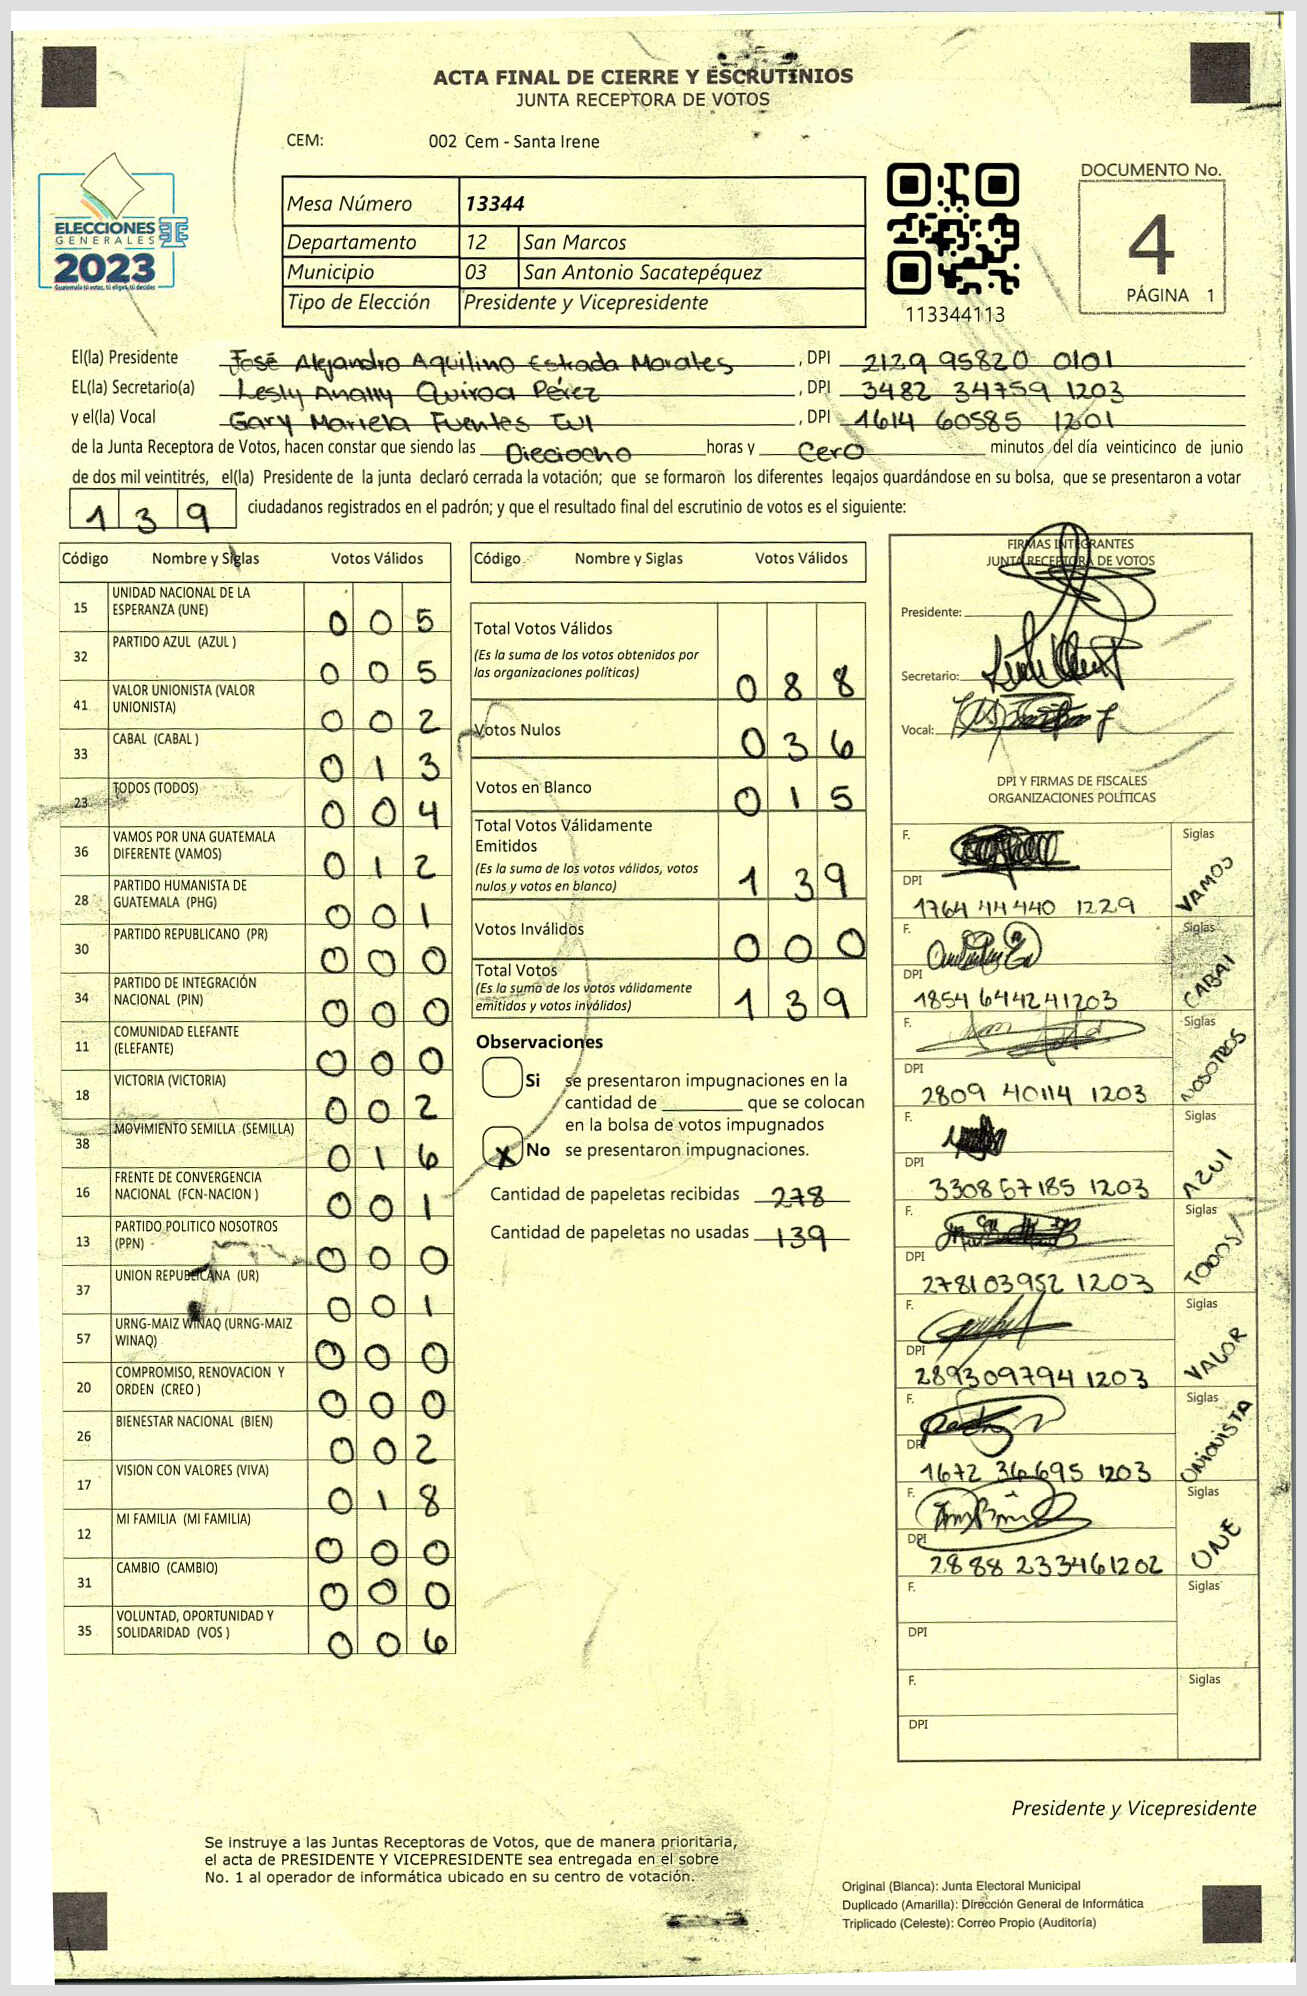 ACTA FINAL DE CIERRE Y ESCRUTINIOS
JUNTA RECEPTORA DE VOTOS
CEM: 002 Cem - Santa Irene
ELECCIONES
GENERALES
2023
Guatemala tú votas, tú eliges, tú decides
Mesa Número 13344
Departamento 12 San Marcos
Municipio 03 San Antonio Sacatepéquez
Tipo de Elección Presidente y Vicepresidente
113344113
DOCUMENTO No.
4
PÁGINA 1
El(la) Presidente José Alejandro Aquilino Estrada Morales , DPI 2129 95820 0101
EL(la) Secretario(a) Lesly Anally Quiroa Pérez , DPI 3482 34759 1203
y el(la) Vocal Gary Mariela Fuentes Tul , DPI 1614 60585 1201
de la Junta Receptora de Votos, hacen constar que siendo las Dieciocho horas y Cero minutos del día veinticinco de junio
de dos mil veintitrés, el(la) Presidente de la junta declaró cerrada la votación; que se formaron los diferentes legajos guardándose en su bolsa, que se presentaron a votar
139 ciudadanos registrados en el padrón; y que el resultado final del escrutinio de votos es el siguiente:
Código Nombre y Siglas Votos Válidos
15 UNIDAD NACIONAL DE LA ESPERANZA (UNE) 005
32 PARTIDO AZUL (AZUL ) 005
41 VALOR UNIONISTA (VALOR UNIONISTA) 002
33 CABAL (CABAL ) 013
23 TODOS (TODOS) 004
36 VAMOS POR UNA GUATEMALA DIFERENTE (VAMOS) 012
28 PARTIDO HUMANISTA DE GUATEMALA (PHG) 001
30 PARTIDO REPUBLICANO (PR) 000
34 PARTIDO DE INTEGRACIÓN NACIONAL (PIN) 000
11 COMUNIDAD ELEFANTE (ELEFANTE) 000
18 VICTORIA (VICTORIA) 002
38 MOVIMIENTO SEMILLA (SEMILLA) 016
16 FRENTE DE CONVERGENCIA NACIONAL (FCN-NACION ) 001
13 PARTIDO POLITICO NOSOTROS (PPN) 000
37 UNION REPUBLICANA (UR) 001
57 URNG-MAIZ WINAQ (URNG-MAIZ WINAQ) 000
20 COMPROMISO, RENOVACION Y ORDEN (CREO ) 000
26 BIENESTAR NACIONAL (BIEN) 002
17 VISION CON VALORES (VIVA) 018
12 MI FAMILIA (MI FAMILIA) 000
31 CAMBIO (CAMBIO) 000
35 VOLUNTAD, OPORTUNIDAD Y SOLIDARIDAD (VOS ) 006
Código Nombre y Siglas Votos Válidos
Total Votos Válidos
(Es la suma de los votos obtenidos por las organizaciones políticas) 088
Votos Nulos 036
Votos en Blanco 015
Total Votos Válidamente Emitidos
(Es la suma de los votos válidos, votos nulos y votos en blanco) 139
Votos Inválidos 000
Total Votos
(Es la suma de los votos válidamente emitidos y votos inválidos) 139
Observaciones
Si se presentaron impugnaciones en la
cantidad de ________ que se colocan
en la bolsa de votos impugnados
X No se presentaron impugnaciones.
Cantidad de papeletas recibidas 278
Cantidad de papeletas no usadas 139
FIRMAS INTEGRANTES
JUNTA RECEPTORA DE VOTOS
Presidente:
Secretario:
Vocal:
DPI Y FIRMAS DE FISCALES
ORGANIZACIONES POLÍTICAS
F. Siglas VAMOS
DPI 1764 44 440 1229
F. Siglas CABAL
DPI 1854 64424 1203
F. Siglas NOSOTROS
DPI 2809 40114 1203
F. Siglas AZUL
DPI 3308 57185 1203
F. Siglas TODOS
DPI 2781 03952 1203
F. Siglas VALOR
DPI 2893 09794 1203
F. Siglas UNIONISTA
DPI 1672 36695 1203
F. Siglas UNE
DPI 2888 23346 1202
F. Siglas
DPI
F. Siglas
DPI
Presidente y Vicepresidente
Se instruye a las Juntas Receptoras de Votos, que de manera prioritaria,
el acta de PRESIDENTE Y VICEPRESIDENTE sea entregada en el sobre
No. 1 al operador de informática ubicado en su centro de votación.
Original (Blanca): Junta Electoral Municipal
Duplicado (Amarilla): Dirección General de Informática
Triplicado (Celeste): Correo Propio (Auditoría)